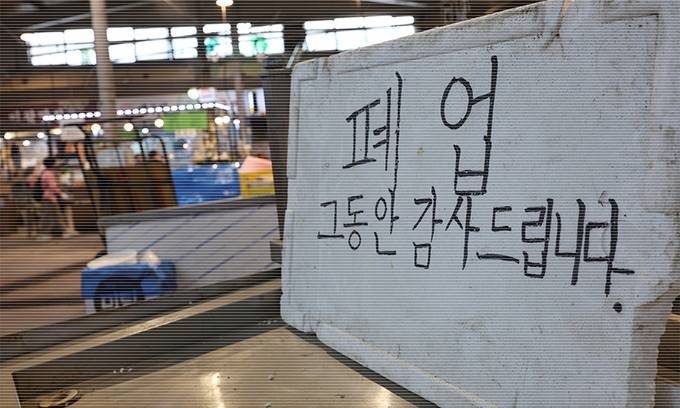 폐업
그동안 감사드립니다.